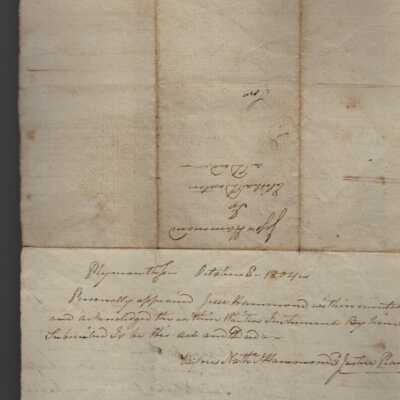 Jesse Hammond
To
Elisha Benton
a Deed
Plymouth ss October 8 - 1804
Personally appeared Jesse Hammond within
and acknowledged the within Written Instrument By him
Subscribed To be his act and Deed -
Before Nath'l Hammond Justice Peace